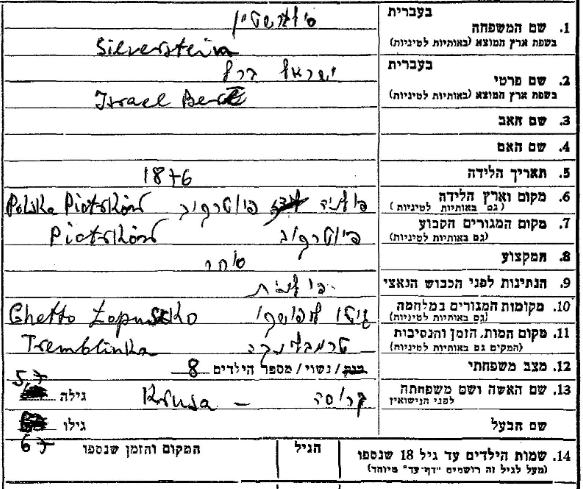 בעברית סילברשטיין
1. שם המשפחה
בשפת ארץ המוצא (באותיות לטיניות) Silverstein
בעברית ישראל ברל
2. שם פרטי
בשפת ארץ המוצא (באותיות לטיניות) Israel Berl
3. שם האב
4. שם האם
5. תאריך הלידה 1876
6. מקום וארץ הלידה פולניה פיוטרקוב Polska Piotrków
(גם באותיות לטיניות)
7. מקום המגורים הקבוע פיוטרקוב Piotrków
(גם באותיות לטיניות)
8. המקצוע סוחר
9. הנתינות לפני הכבוש הנאצי פולנית
10. מקומות המגורים במלחמה גיטו Ghetto
(גם באותיות לטיניות)
11. מקום המות, הזמן והנסיבות טרמבלינקה Tremblinka
(המקים גם באותיות לטיניות)
12. מצב משפחתי נשוי / מספר הילדים 8
13. שם האשה ושם משפחתה קרוסה – Krusa גילה 57
לפני הנישואין
שם הבעל גילו 67
14. שמות הילדים עד גיל 18 שנספו הגיל המקום והזמן שנספו
(מעל לגיל זה רושמים "דף-עד" מיוחד)